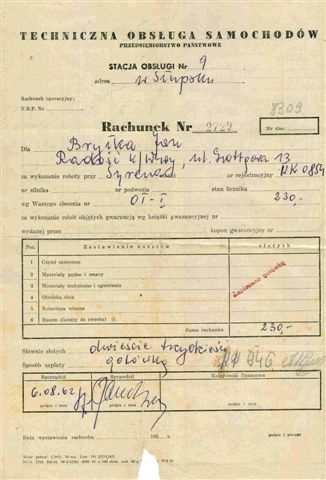 TECHNICZNA OBSŁUGA SAMOCHODÓW
PRZEDSIĘBIORSTWO PAŃSTWOWE
STACJA OBSŁUGI Nr 9
adres w Słupsku
Rachunek operacyjny:
N.B.P. Nr
8309
Rachunek Nr 2729
Nr zlec.
Dla Bryłka Jan
Radość k/W-wy, ul. Grottgera 13
za wykonanie roboty przy Syrena nr rejestracyjny
nr silnika nr podwozia stan licznika
wg Waszego zlecenia nr OT-I 230,-
za wykonanie robót objętych gwarancją wg książki gwarancyjnej nr
wydanej przez kupon gwarancyjny nr
Poz. Zestawienie kosztów złotych
1 Części zamienne
2 Materiały pędne i smary
3 Materiały techniczne i ogumienie
4 Obróbka obca
5 Robocizna własna
6 Razem (koszty do zwrotu)
Zapłacono gotówką
Suma rachunku 230,-
Słownie złotych dwieście trzydzieści
Sposób zapłaty gotówką
Sporządził Sprawdził Księgowość finansowa
6.08.62
podpis i data podpis i data podpis i data
Data wystawienia rachunku 195 r.
podpis i pieczęć